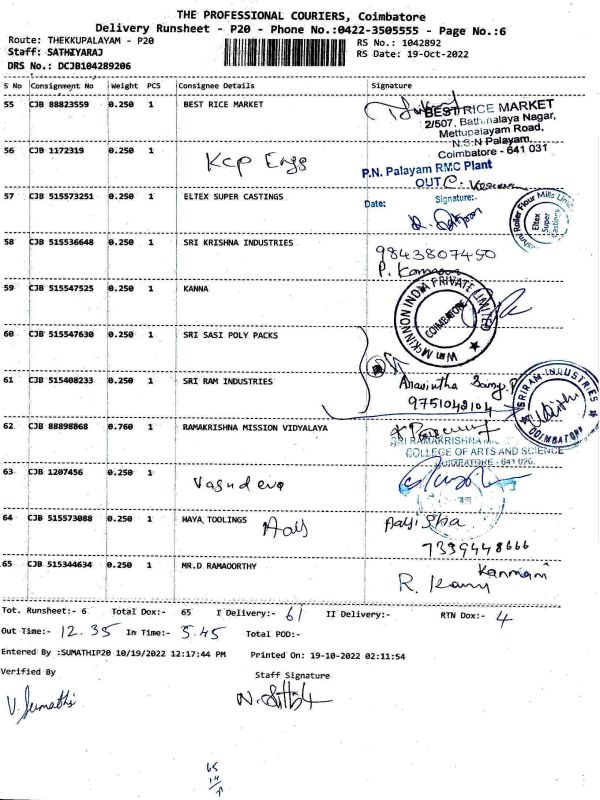 THE PROFESSIONAL COURIERS, Coimbatore
Delivery Runsheet - P20 - Phone No.:0422-3505555 - Page No.:6
Route: THEKKUPALAYAM - P20 RS No.: 1042892
Staff: SATHIYARAJ RS Date: 19-Oct-2022
DRS No.: DCJB104289206
S No Consignment No Weight PCS Consignee Details Signature
55 CJB 88823559 0.250 1 BEST RICE MARKET
BEST RICE MARKET
2/507, Bathinalaya Nagar,
Mettupalayam Road,
N.S.N Palayam,
Coimbatore - 641 031
56 CJB 1172319 0.250 1 Kcp Engg
P.N. Palayam RMC Plant
OUT
57 CJB 515573251 0.250 1 ELTEX SUPER CASTINGS
Date: Signature:-
Roller Flour Mills Limi
Eltex
Super
Castings
58 CJB 515536648 0.250 1 SRI KRISHNA INDUSTRIES
9843807450
P.
59 CJB 515547525 0.250 1 KANNA
McKINNON INDIA PRIVATE LIMITED
COIMBATORE
60 CJB 515547630 0.250 1 SRI SASI POLY PACKS
61 CJB 515408233 0.250 1 SRI RAM INDUSTRIES
Aravintha Samy.P
9751048104
SRIRAM-INDUSTRIES
COIMBATORE
62 CJB 88898868 0.760 1 RAMAKRISHNA MISSION VIDYALAYA
SRI RAMAKRISHNA
COLLEGE OF ARTS AND SCIENCE
COIMBATORE - 641 020.
63 CJB 1207456 0.250 1 Vasudeva
64 CJB 515573088 0.250 1 MAYA TOOLINGS
7339448666
65 CJB 515344634 0.250 1 MR.D RAMAOORTHY
Kanmani
R.
Tot. Runsheet:- 6 Total Dox:- 65 I Delivery:- 61 II Delivery:- RTN Dox:- 4
Out Time:- 12.35 In Time:- 5.45 Total POD:-
Entered By :SUMATHIP20 10/19/2022 12:17:44 PM Printed On: 19-10-2022 02:11:54
Verified By Staff Signature
V. Sumathi
65